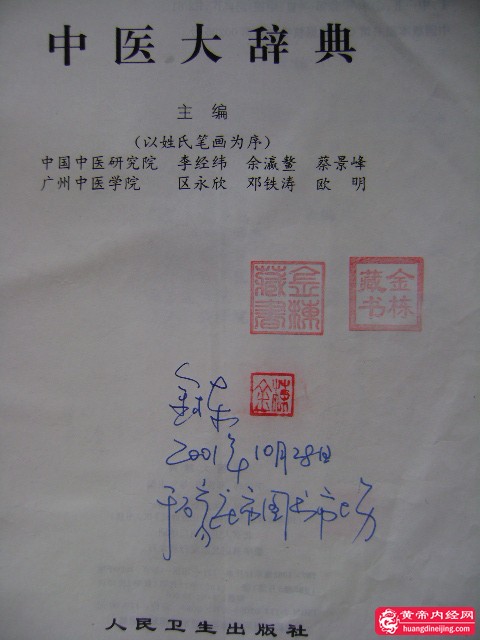 中医大辞典
主 编
(以姓氏笔画为序)
中国中医研究院 李经纬 余瀛鳌 蔡景峰
广州中医学院 区永欣 邓铁涛 欧 明
金栋藏书
金栋藏书
金栋
金栋
2001年10月28日
于石家庄市图书市场
人民卫生出版社
黄帝内经网
huangdineijing.com